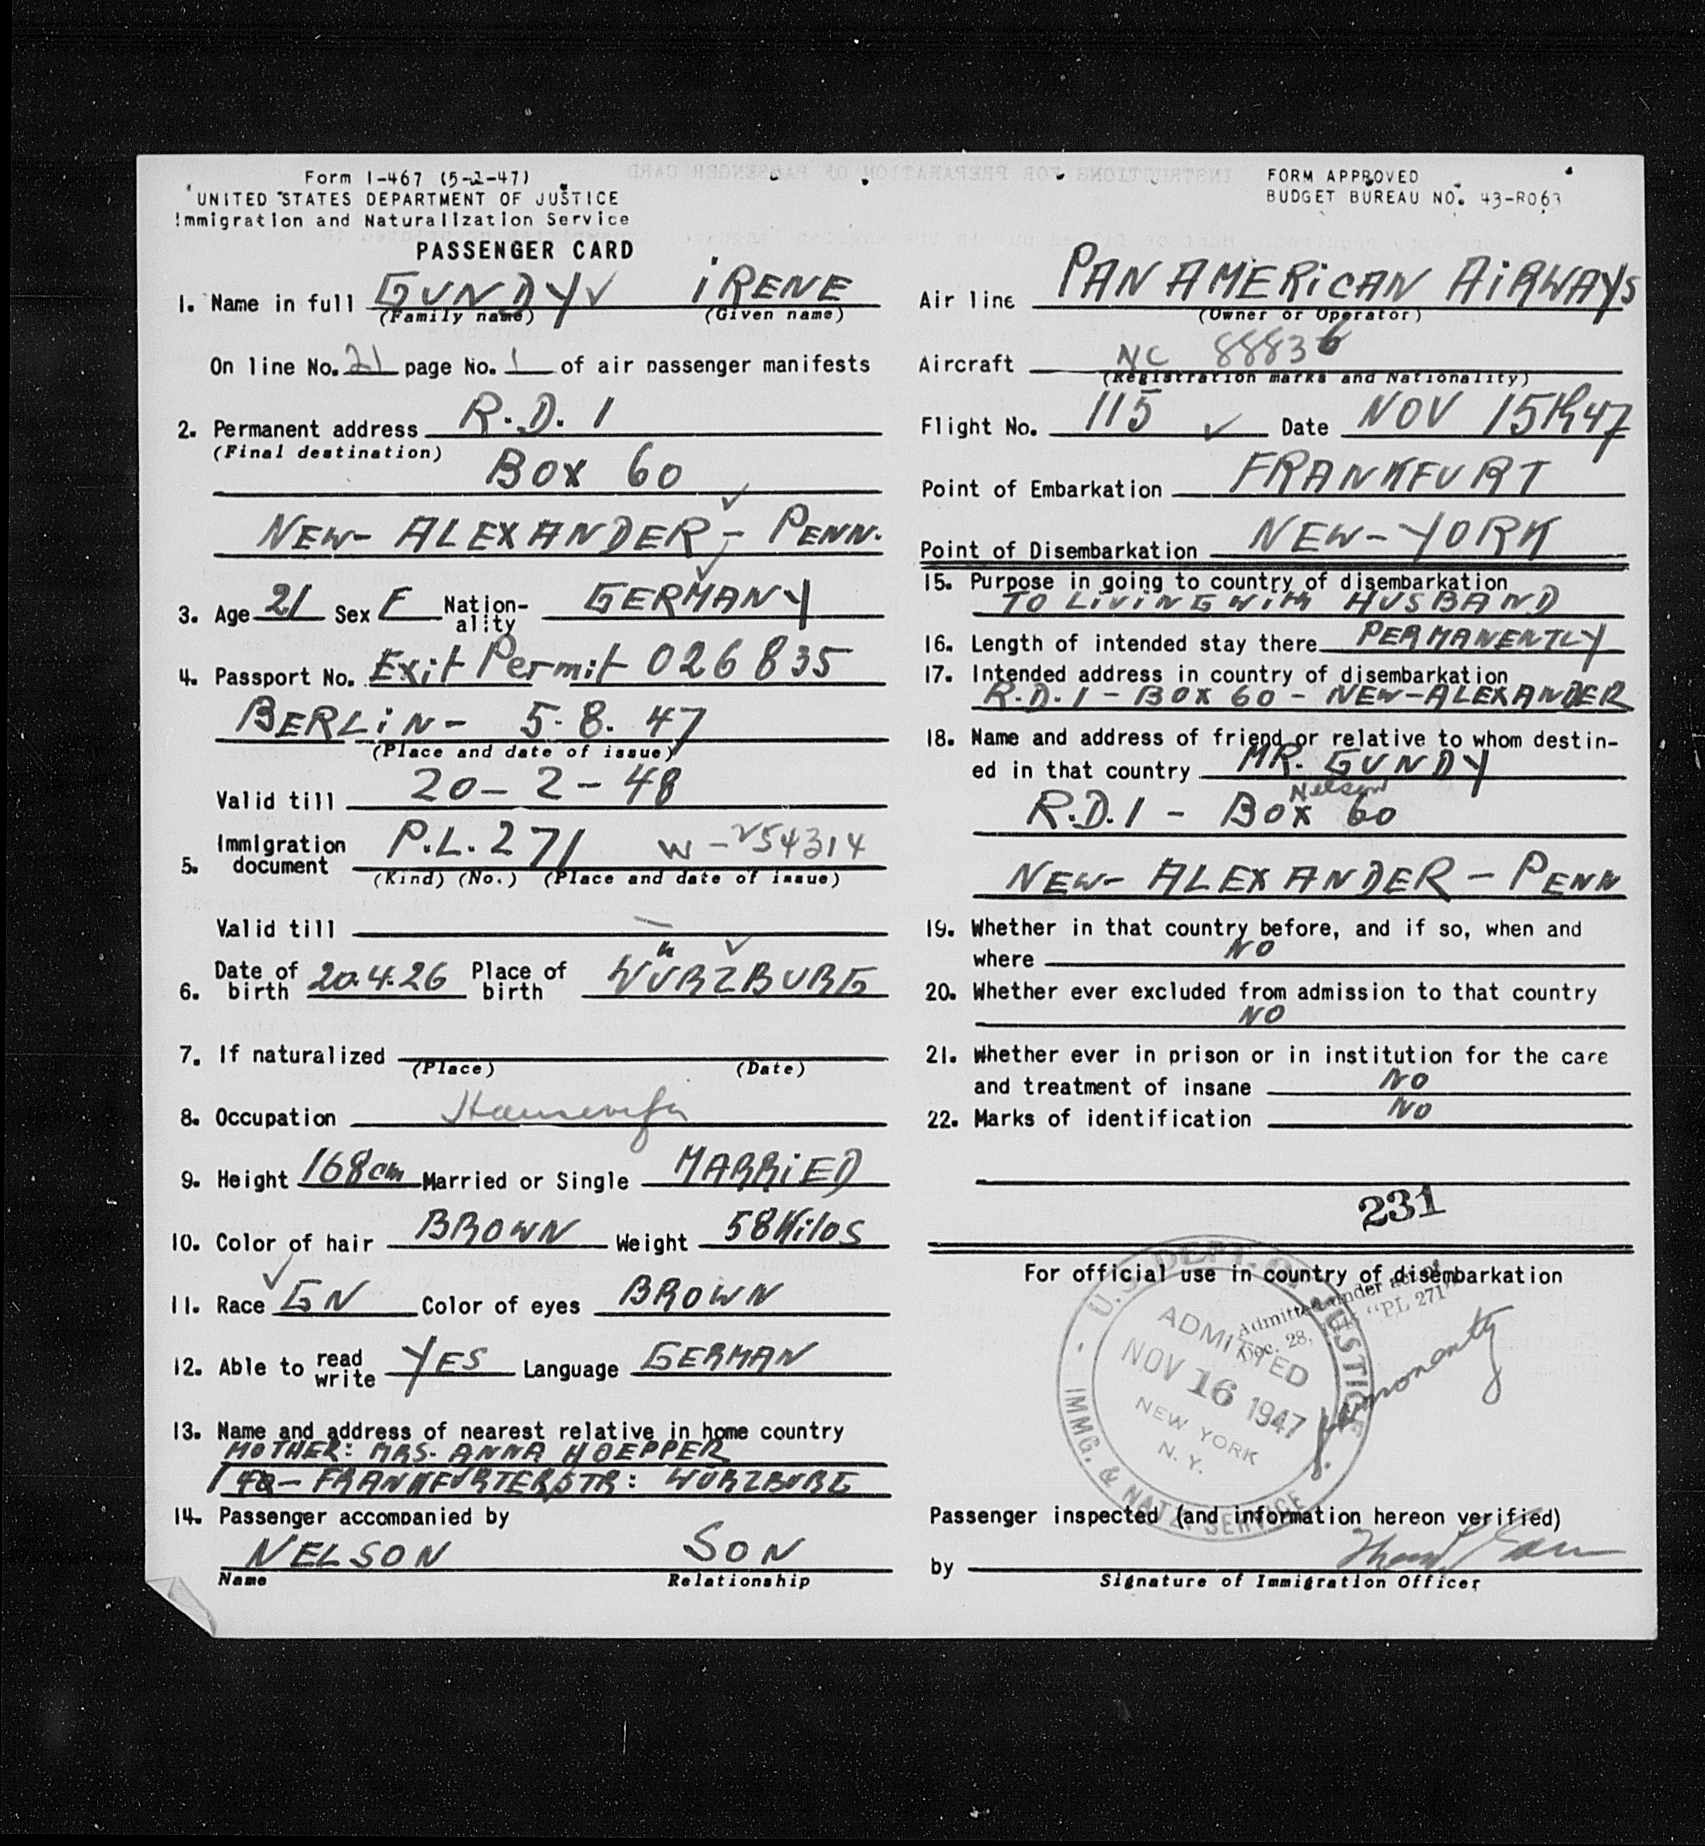 Form I-467 (5-2-47)
UNITED STATES DEPARTMENT OF JUSTICE
Immigration and Naturalization Service
PASSENGER CARD
1. Name in full GUNDY IRENE
(Family name) (Given name)
On line No. 21 page No. 1 of air passenger manifests
2. Permanent address R.D. 1
(Final destination)
BOX 60
NEW- ALEXANDER - PENN.
3. Age 21 Sex F Nation-ality GERMANY
4. Passport No. Exit Permit 026835
BERLIN - 5.8.47
(Place and date of issue)
Valid till 20-2-48
5. Immigration document P.L.271 W-254314
(Kind) (No.) (Place and date of issue)
Valid till —
6. Date of birth 20.4.26 Place of birth WÜRZBURG
7. If naturalized
(Place) (Date)
8. Occupation Housewife
9. Height 168cm Married or Single MARRIED
10. Color of hair BROWN Weight 58Kilos
11. Race GN Color of eyes BROWN
12. Able to read write YES Language GERMAN
13. Name and address of nearest relative in home country
MOTHER: MRS. ANNA HOEPPER
FRANKFURTERSTR: WÜRZBURG
14. Passenger accompanied by
NELSON SON
Name Relationship
FORM APPROVED
BUDGET BUREAU NO. 43-R063
Air line PAN AMERICAN AIRWAYS
(Owner or Operator)
Aircraft NC 88836
(Registration marks and Nationality)
Flight No. 115 Date NOV 15th 47
Point of Embarkation FRANKFURT
Point of Disembarkation NEW-YORK
15. Purpose in going to country of disembarkation
TO LIVING WITH HUSBAND
16. Length of intended stay there PERMANENTLY
17. Intended address in country of disembarkation
R.D.1 - BOX 60 - NEW-ALEXANDER
18. Name and address of friend or relative to whom destin-
ed in that country MR. GUNDY
Nelson
R.D.1 - BOX 60
NEW- ALEXANDER - PENN
19. Whether in that country before, and if so, when and
where NO
20. Whether ever excluded from admission to that country
NO
21. Whether ever in prison or in institution for the care
and treatment of insane NO
22. Marks of identification NO
231
For official use in country of disembarkation
U.S. DEPT. OF JUSTICE
Admitted under act of
Dec. 28, "PL 271"
ADMITTED
NOV 16 1947
NEW YORK
N. Y.
IMMG. & NATZ. SERVICE
Passenger inspected (and information hereon verified)
by
Signature of Immigration Officer